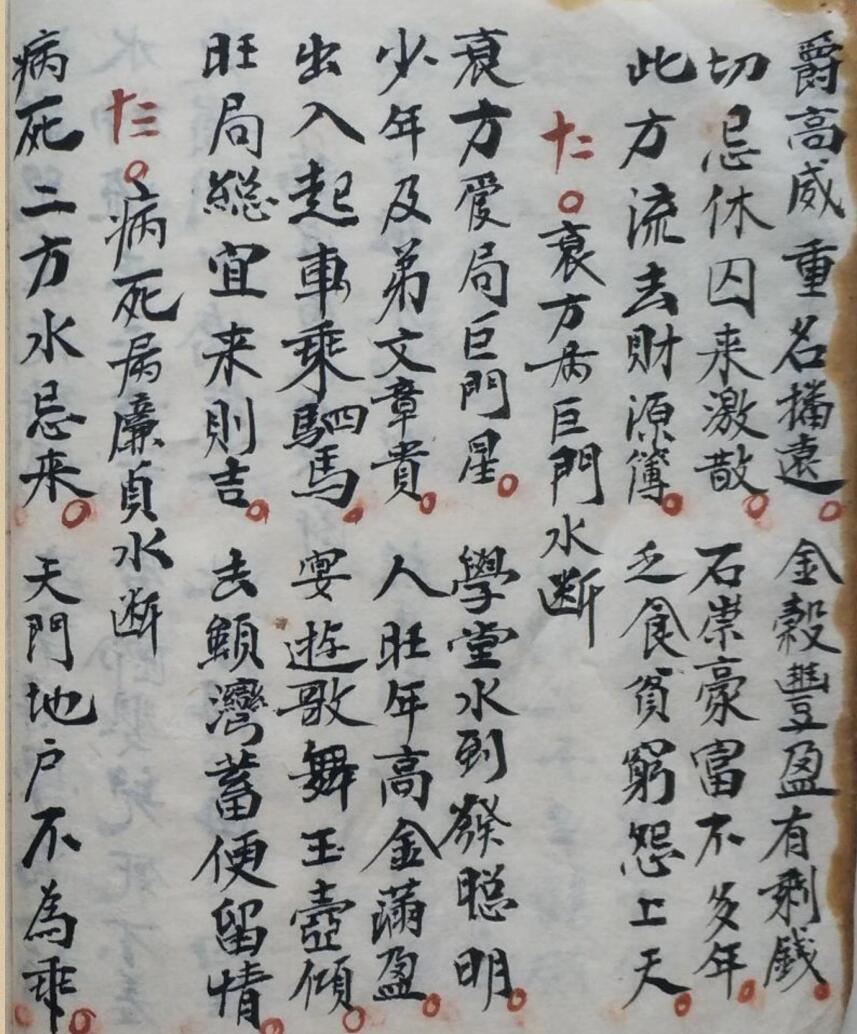 爵高威重名播遠。金穀豐盈有剩錢。
切忌休囚来激散。石崇豪富不多年。
此方流去財源簿。乏食貧窮怨上天。
十二。衰方为巨門水断
衰方爱局巨門星。學堂水到發聪明。
少年及弟文章貴。人旺年高金滿盈。
出入起車乘駟馬。宴遊歌舞玉壺傾。
旺局總宜来則吉。去顖灣蓄便留情。
十三。病死为廉貞水断
病死二方水忌来。天門地户不為乖。